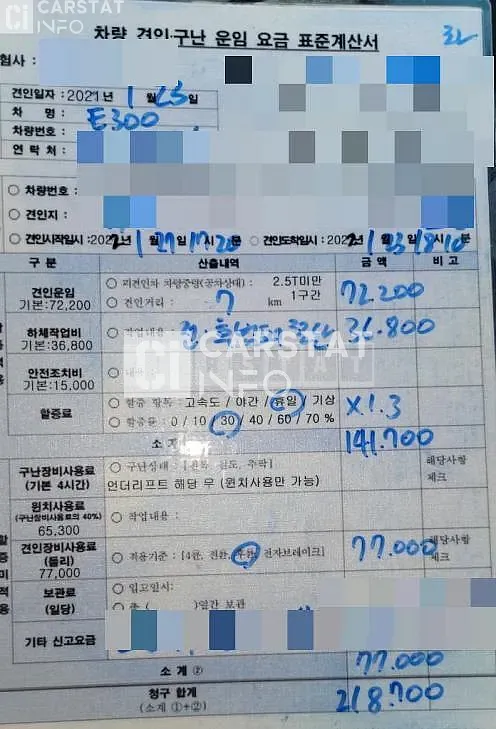 CARSTAT
INFO
차량 견인·구난 운임 요금 표준계산서
험사 :
견인일자 : 2021년 1월 25일
차 명 : E300
차량번호 :
연 락 처 :
차량번호 :
견인지 :
견인시작일시 : 202 년 1월 일 17시 20분 견인도착일시 : 202 1 18 10
구 분 산출내역 금 액 비 고
견인운임 피견인차 차량중량(공차상태) : 2.5T미만 72.200
기본:72,200 견인거리 : 7 km 1구간
하체작업비 작업내용 : 36.800
기본:36,800
안전조치비
기본:15,000
할증료 할증 항목 : 고속도 / 야간 / 휴일 / 기상 X1.3
할증률 : 0 / 10 / 30 / 40 / 60 / 70 %
소 141.700
CARSTAT
INFO
구난장비사용료 구난상태 : 해당사항
(기본 4시간) 언더리프트 해당 무 (윈치사용만 가능) 체크
윈치사용료
(구난장비사용료의 40%) 작업내용 :
65,300
견인장비사용료 적용기준 : [4륜, 전륜, 후륜, 전자브레이크] 77.000 해당사항
(돌리) 체크
77,000
보관료 입고일시:
(일당) ( )일간 보관
기타 신고요금
소 계 ② 77.000
청구 합계 218.700
(소계 ①+②)